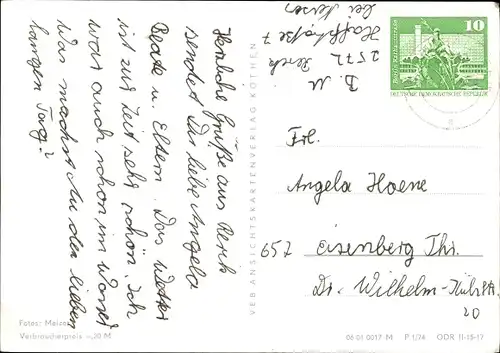 Herzliche Grüße aus Rerik
sendet Dir liebe Angela
Beate u. Eltern. Das Wetter
ist zur Zeit sehr schön. Ich
war auch schon im Wasser
Was machst du den lieben
langen Tag?
Fotos:
Verbraucherpreis -,20 M
VEB ANSICHTSKARTENVERLAG KÖTHEN
B. M
2572 Rerik
Haffstraße 7
bei
10
DEUTSCHE DEMOKRATISCHE REPUBLIK
Frl.
Angela Hoene
657 Eisenberg Thr.
Dr. Wilhelm-Külz-Str.
20
06 01 0017 M P 1/74 ODR II-15-17